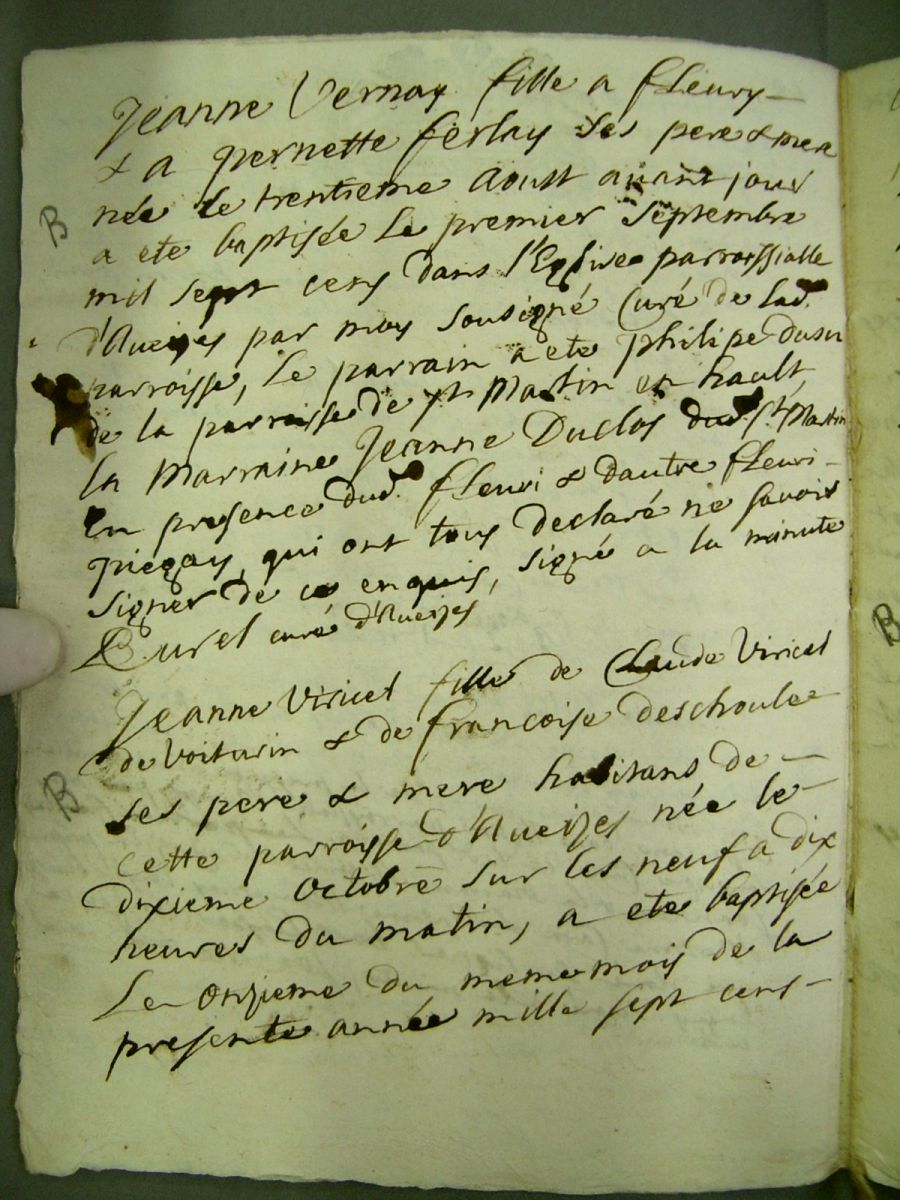 Jeanne Vernay fille a fleury
& a pernette ferlay ses pere & mere
B
née le trentieme Aoust avant jour
a ete baptisée Le premier Septembre
mil sept cens dans l'Eglise parroissialle
d'Aveizes par moy sousigné Curé de lad.
parroisse, Le parrain a ete philipe
de la parroisse de st Martin en hault
la Marraine Jeanne Duclos dud. st Martin
En presence dud. fleuri & dautre fleuri
piegay, qui ont tous declaré ne savoir
signer de ce enquis, signé a la minute
curé d'Aveizes
Jeanne Viricel fille de Claude Viricel
de Voiturin & de francoise deschoule
B
ses pere & mere habitans de
cette parroisse d'Aveizes née le
dixieme octobre sur les neuf a dix
heures du matin, a ete baptisée
Le onzieme du meme mois de la
presente année mille sept cens
B